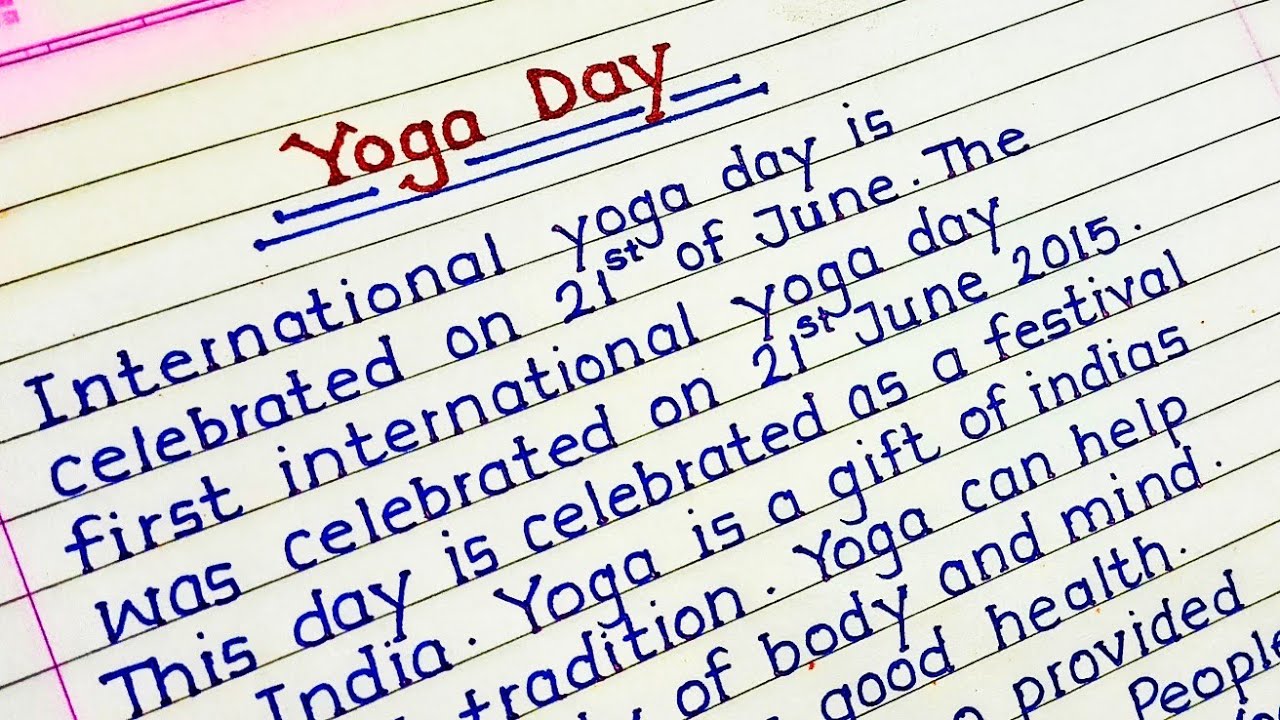 Yoga Day
International yoga day is
celebrated on 21st of June. The
first international yoga day
was celebrated on 21st June 2015.
This day is celebrated as a festival
India. Yoga is a gift of indias
tradition. Yoga can help
of body and mind.
good health.
provided
People